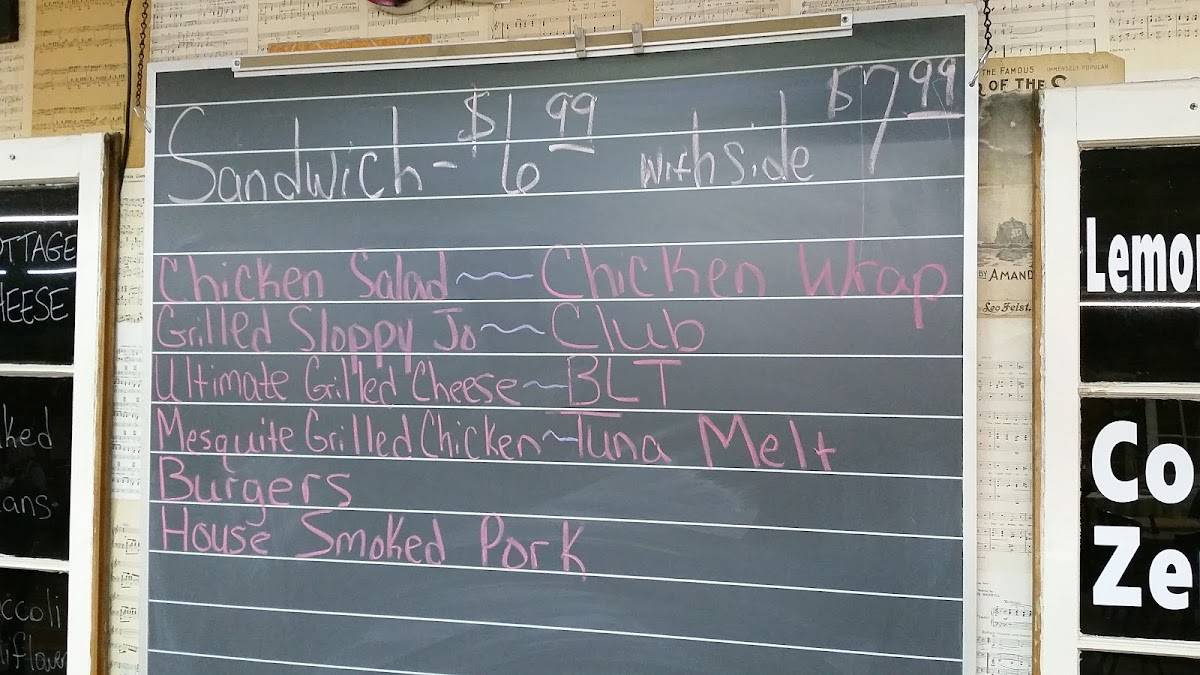 Sandwich - $6.99 with side $7.99
Chicken Salad ~ Chicken Wrap
Grilled Sloppy Jo ~ Club
Ultimate Grilled Cheese ~ BLT
Mesquite Grilled Chicken ~ Tuna Melt
Burgers
House Smoked Pork
OTTAGE
HEESE
ked
ans
ccoli
iflower
THE FAMOUS
IMMENSELY POPULAR
OF THE S
BY AMAND
Leo Feist.
Lemon
Co
Ze